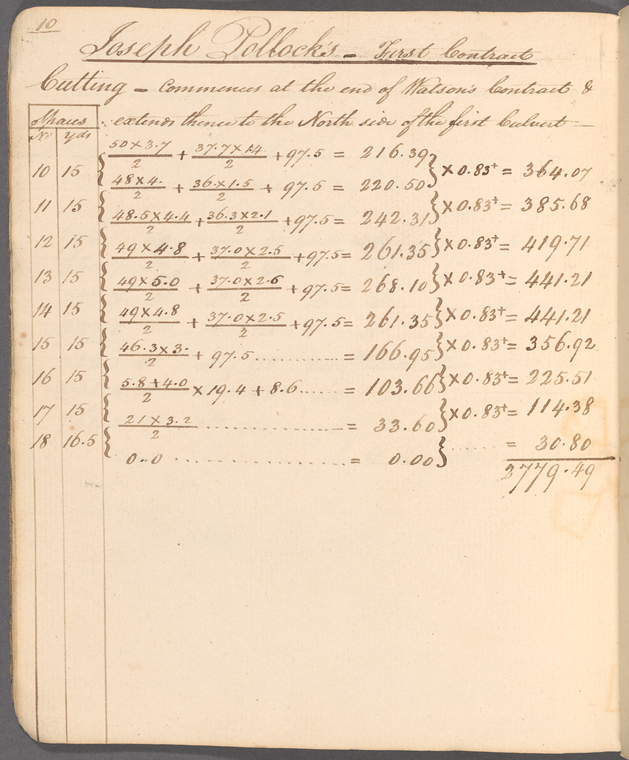 10
Joseph Pollock's - First Contract
Cutting - Commences at the end of Watson's Contract &
Spaces extends thence to the North side of the first Culvert
No yds
50×3.7/2 + 37.7×1.4/2 + 97.5 = 216.39
10 15 × 0.83+ = 364.07
48×4./2 + 36×1.5/2 + 97.5 = 220.50
11 15 × 0.83+ = 385.68
48.5×4.4/2 + 36.3×2.1/2 + 97.5 = 242.31
12 15 × 0.83+ = 419.71
49×4.8/2 + 37.0×2.5/2 + 97.5 = 261.35
13 15 × 0.83+ = 441.21
49×5.0/2 + 37.0×2.6/2 + 97.5 = 268.10
14 15 × 0.83+ = 441.21
49×4.8/2 + 37.0×2.5/2 + 97.5 = 261.35
15 15 × 0.83+ = 356.92
46.3×3./2 + 97.5 .......... = 166.95
16 15 × 0.83+ = 225.51
5.8+4.0/2 × 19.4 + 8.6 ..... = 103.66
17 15 × 0.83+ = 114.38
21×3.2/2 .................. = 33.60
18 16.5 ...... = 30.80
0-0 .................. = 0.00
2779.49